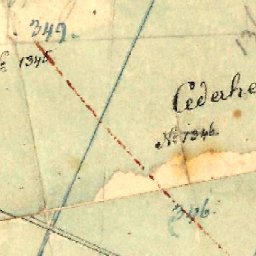 349.
1345
Cederhe
No 1346.
346.